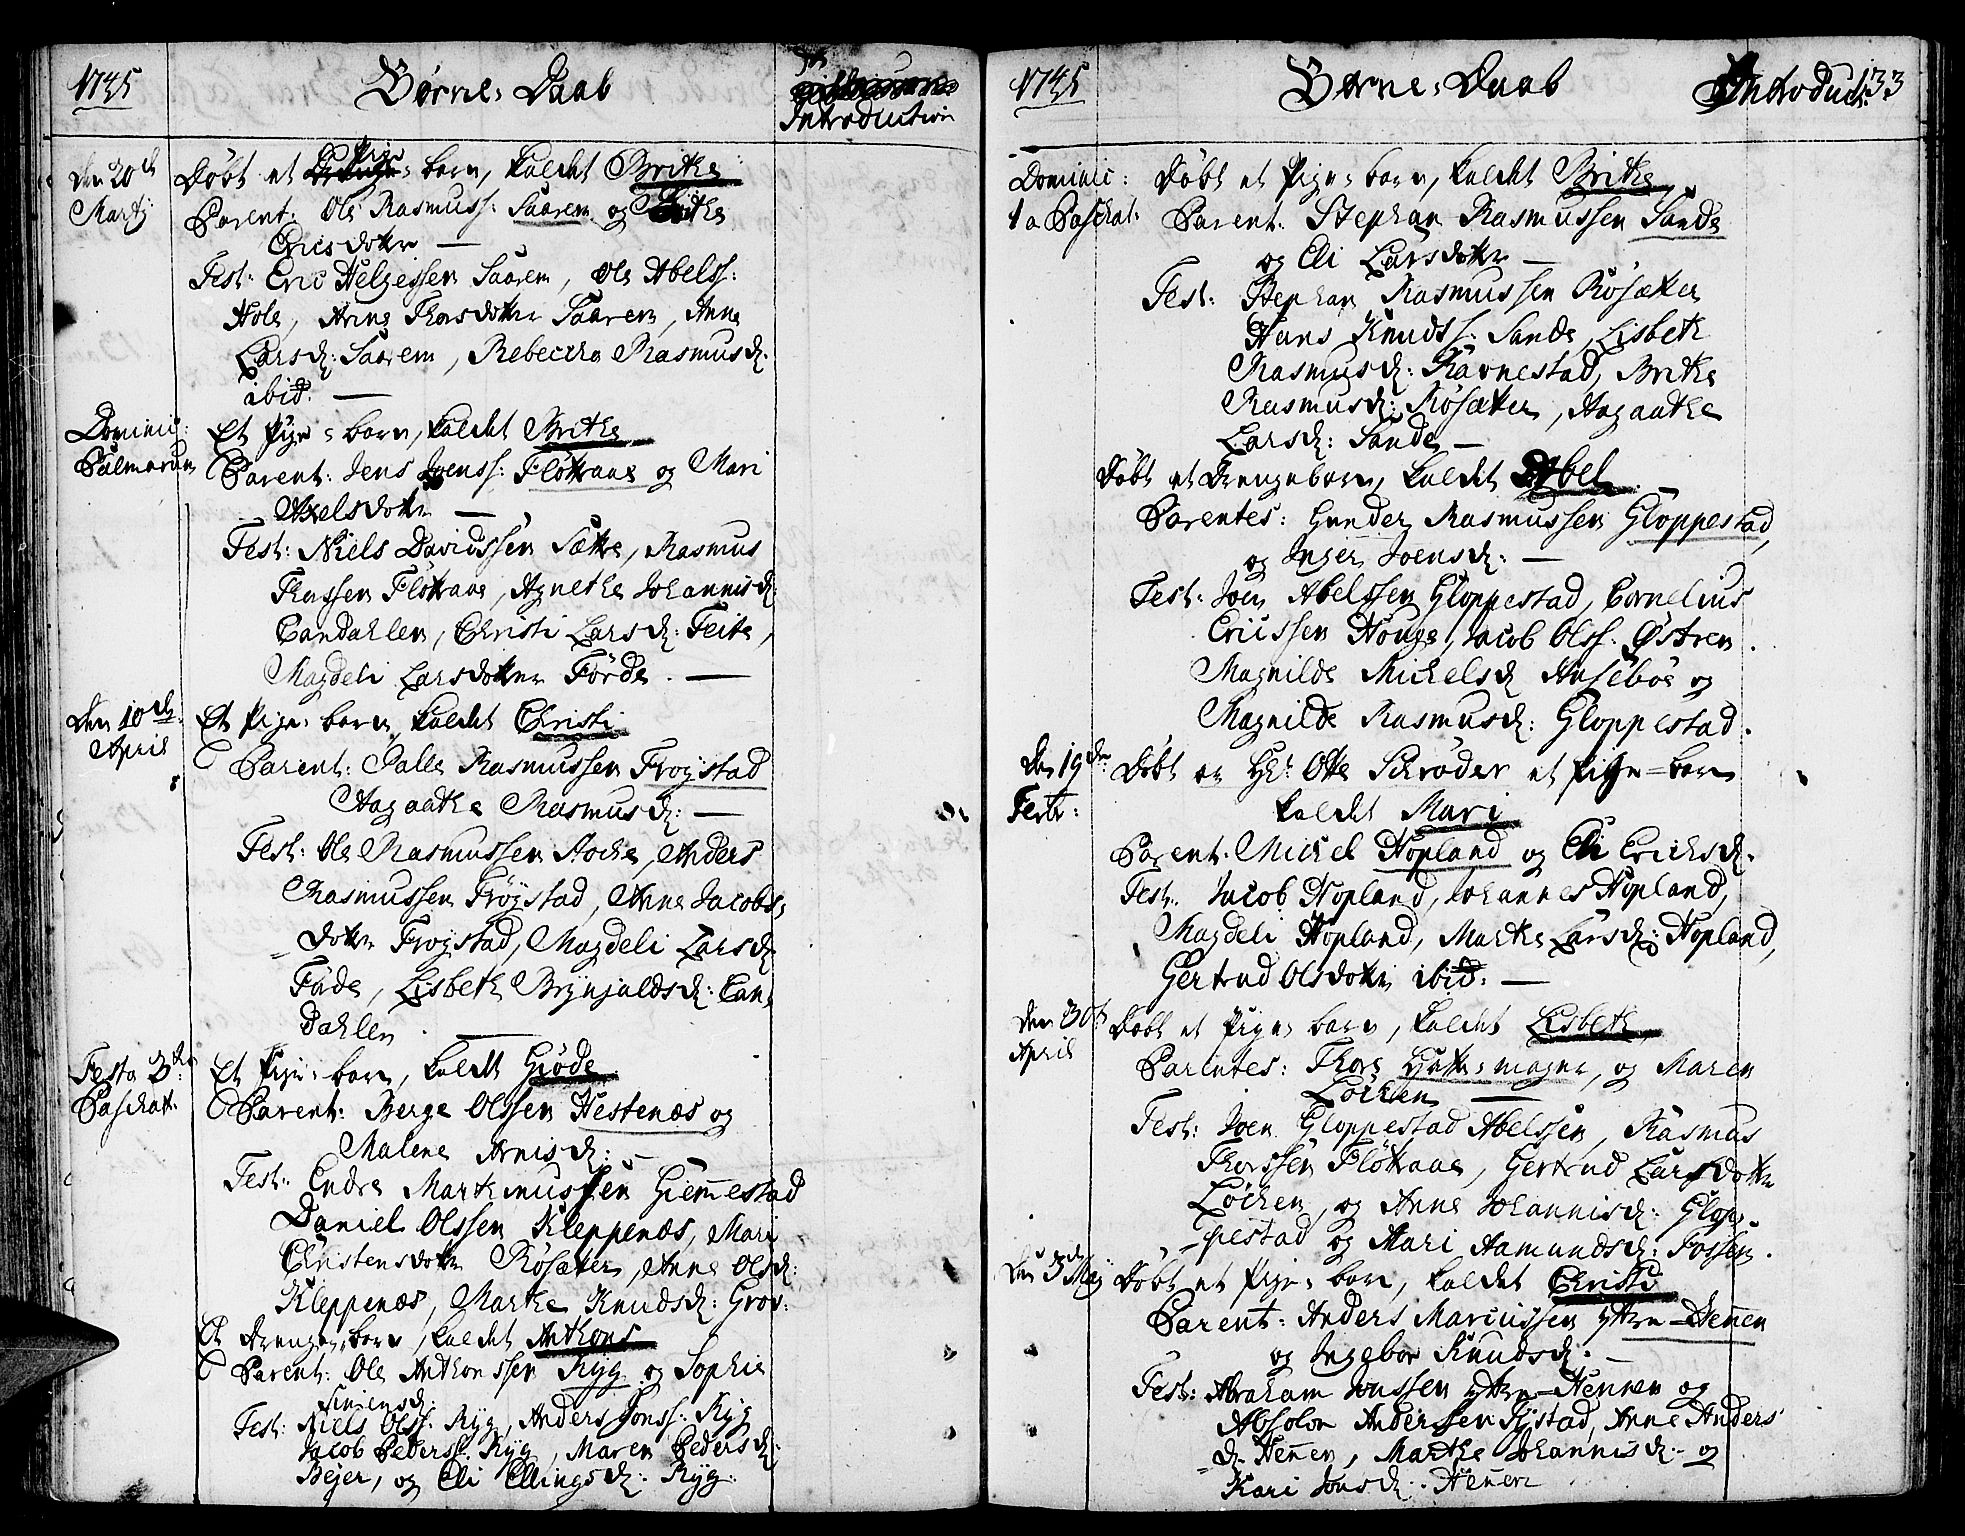 1745
Børne-Daab
Introduction
Den 20de Martij
Døbt et Pige-barn, kaldet Brithe
Parent: Ole Rasmuss: Saarem og Brithe
Ericsdotter —
Test: Eric Helgessen Saarem, Ole Abelss:
Hole, Arine Thorsdotter Saarem, Anne
Larsd: Saarem, Rebeccha Rasmusd:
ibid. —
Dominic: Palmarum
Et Pige-barn, kaldet Brithe
Parent: Jens Joenss: Fløtraae og Mari
Axelsdotter —
Test: Niels Davidssen Sætre, Rasmus
Thorssen Fløtraae, Agnethe Johannisd:
Eandahlen, Christi Larsd: Feite,
Magdeli Larsdotter Förde. —
Den 10de April
Et Pige-barn, kaldet Christi
Parent: Palle Rasmussen Frøystad
Aagaathe Rasmusd: —
Test: Ole Rasmussen Aache, Anders
Rasmussen Frøystad, Anne Jacobs-
dotter Frøystad, Magdeli Larsd:
Förde, Lisbeth Brynjaldsd: Ean-
dahlen. —
Festo 3tio Paschat:
Et Pige-barn, kaldet Giøde
Parent: Berge Olssen Hestenæs og
Malene Arnisd: —
Test: Endre Marthinussen Giem̄estad
Daniel Olssen Kleppenæs, Mari
Christensdotter Røsæter, Anne Olsd:
Kleppenæs, Marthe Knudsd: Grov:
Et Drenge-barn, kaldet Anthone
Parent: Ole Anthonssen Ryg og Sophie
Simensd:
Test: Niels Olss: Ryg, Anders Jonss: Ryg
Jacob Pederss: Ryg, Maren Pedersd:
Bejer, og Eli Ellingsd: Ryg:
1745
Børne-Daab
Introduct: 133
Dominic: 1a Paschat:
Døbt et Pige-barn, kaldet Brithe
Parent: Stephan Rasmussen Sande
og Eli Larsdotter —
Test: Stephan Rasmussen Røsæter
Hans Knudss: Sande, Lisbeth
Rasmusd: Ravnestad, Brithe
Rasmusd: Røsæter, Aagaathe
Larsd: Sande —
Døbt et Drengebarn, kaldet Abel
Parentes: Gunder Rasmussen Gloppestad,
og Inger Joensd: —
Test: Joen Abelssen Gloppestad, Cornelius
Ericssen Houge, Jacob Olss: Østren
Magnilde Mickelsd Husebøe og
Magnilde Rasmusd: Gloppestad.
Den 19de Febr:
Døbt av Hr: Otte Schrøder et Pige-barn
kaldet Mari
Parent: Mickel Hopland og Eli Erichsd.
Test: Jacob Hopland, Johannes Hopland,
Magdeli Hopland, Marthe Larsd: Hopland,
Gertrud Olsdotter ibid: —
Den 30te April
Døbt et Pige-barn, kaldet Lisbeth
Parentes: Thore Hatte-mager, og Maren
Löchen —
Test: Joen Gloppestad Abelssen, Rasmus
Thorssen Fløtraae, Gertrud Larsdotter
Löchen, og Anne Johannisd: Glop-
pestad og Mari Aamundsd: Fossen.
Den 3de Maj
Døbt et Pige-barn, kaldet Christi
Parent: Anders Marcussen Ytre-Hen̄en
og Ingebor Knudsd: —
Test: Abraham Jonssen Ytre-Hennen og
Absolon Anderssen Rystad, Anne Anders-
d: Hen̄en, Marthe Johannisd: og
Kari Jonsd: Hennen